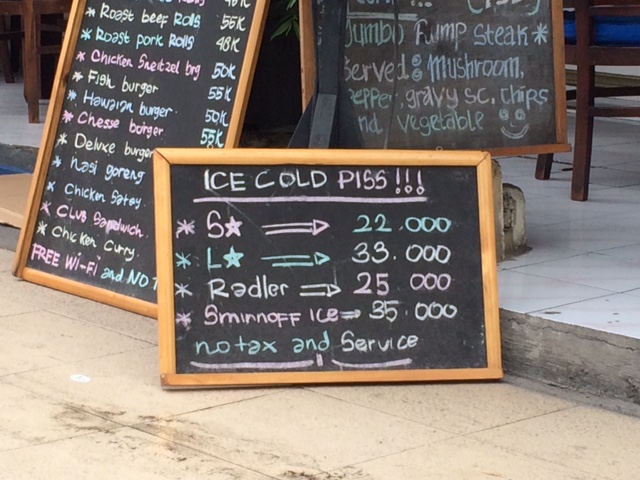 Roast beef Rolls 55K
* Roast pork Rolls 48K
* Chicken Sneitzel brg 50K
* Fish burger 55K
* Hawaian burger 50K
* Chesse borger 55K
* Deluxe burger
* Nasi goreng
* Chicken Satay
* CLUB Sandwich.
* Chicken Curry
FREE Wi-Fi and NO T
Jumbo Rump Steak *
Served : Mushroom,
pepper, gravy sc, chips
nd vegetable
ICE COLD PISS!!!
* S★ ⇒ 22.000
* L★ ⇒ 33.000
* Radler ⇒ 25 000
* Sminnoff ice ⇒ 35.000
no tax and Service